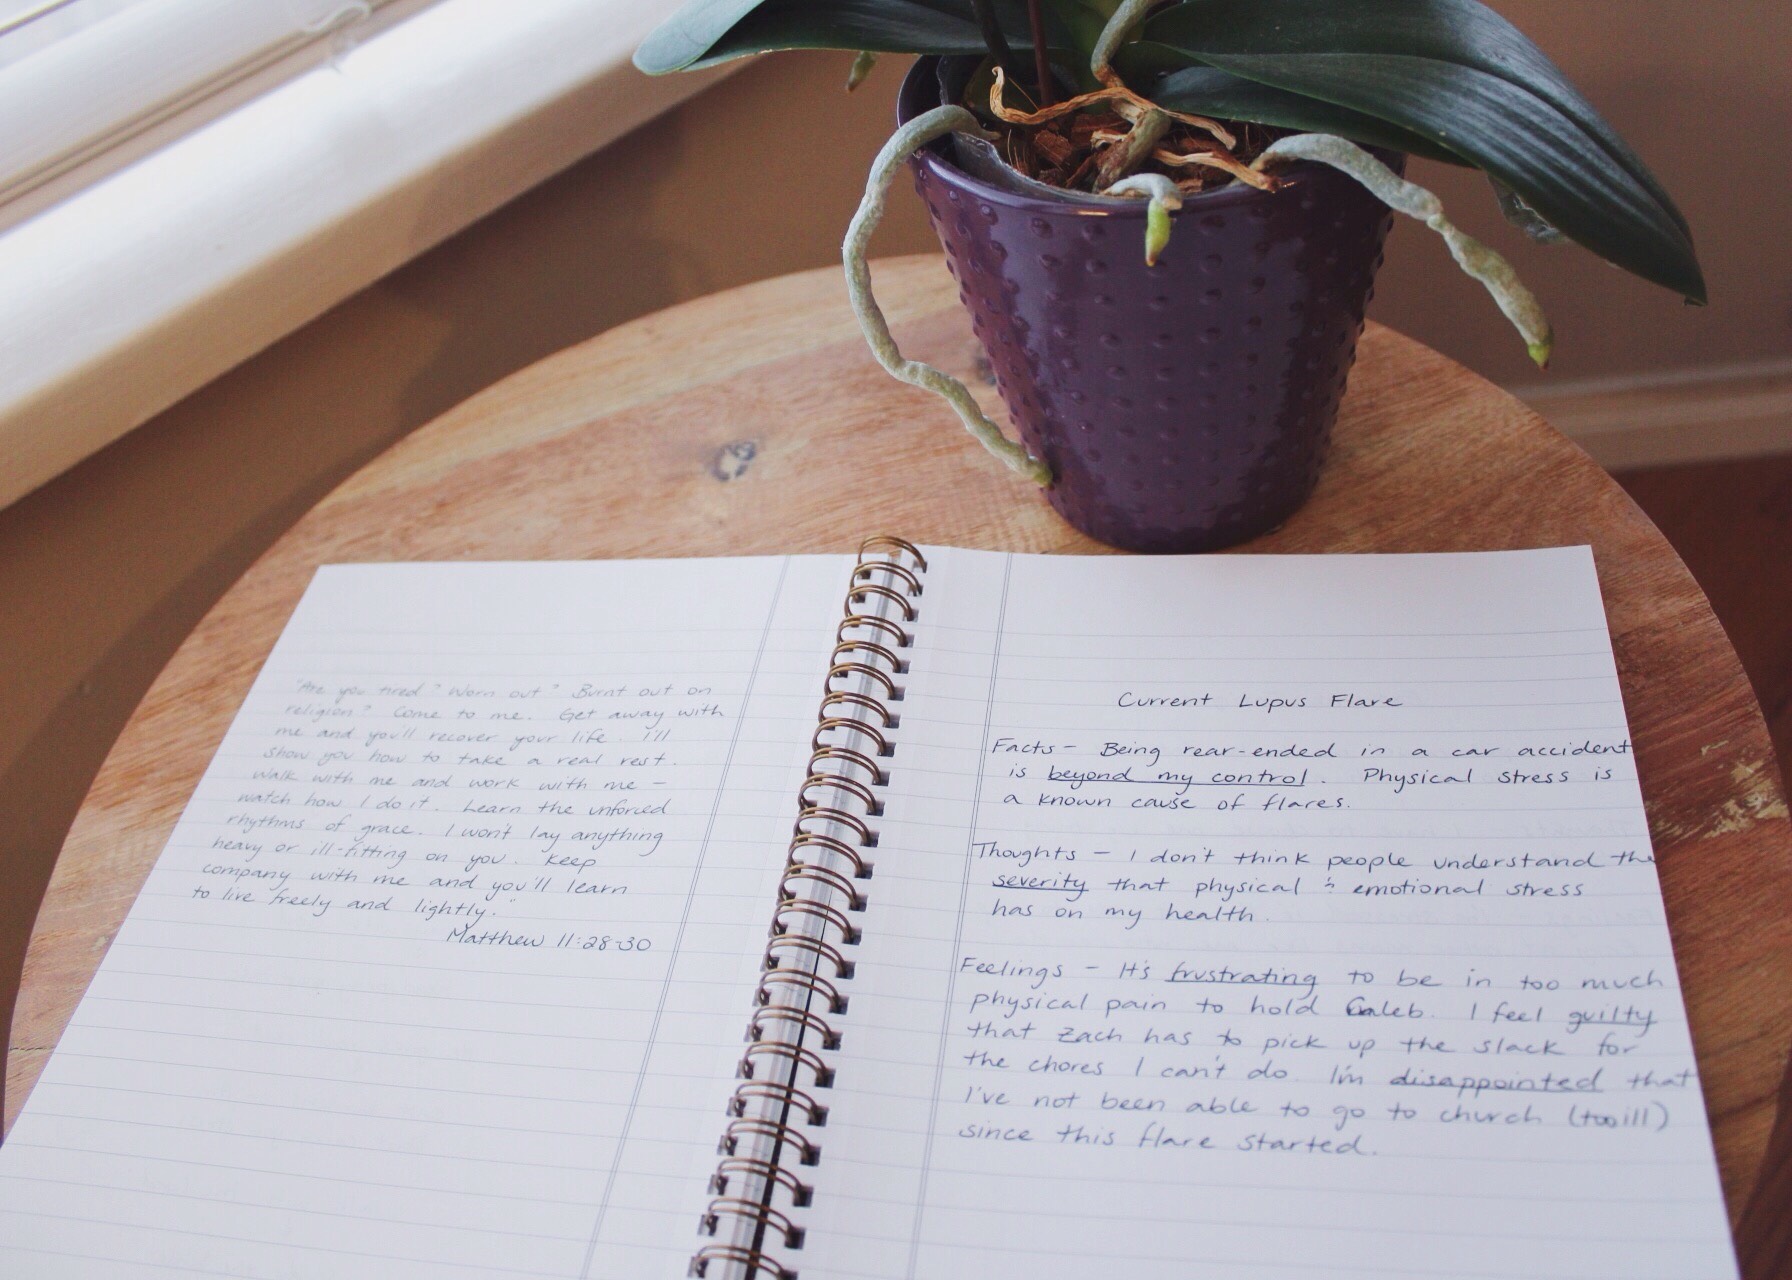 "Are you tired? Worn out? Burnt out on
religion? Come to me. Get away with
me and you'll recover your life. I'll
show you how to take a real rest.
Walk with me and work with me –
watch how I do it. Learn the unforced
rhythms of grace. I won't lay anything
heavy or ill-fitting on you. Keep
company with me and you'll learn
to live freely and lightly."
Matthew 11:28-30
Current Lupus Flare
Facts - Being rear-ended in a car accident
is beyond my control. Physical stress is
a known cause of flares.
Thoughts - I don't think people understand the
severity that physical & emotional stress
has on my health.
Feelings - It's frustrating to be in too much
physical pain to hold Caleb. I feel guilty
that Zach has to pick up the slack for
the chores I can't do. I'm disappointed that
I've not been able to go to church (too ill)
since this flare started.